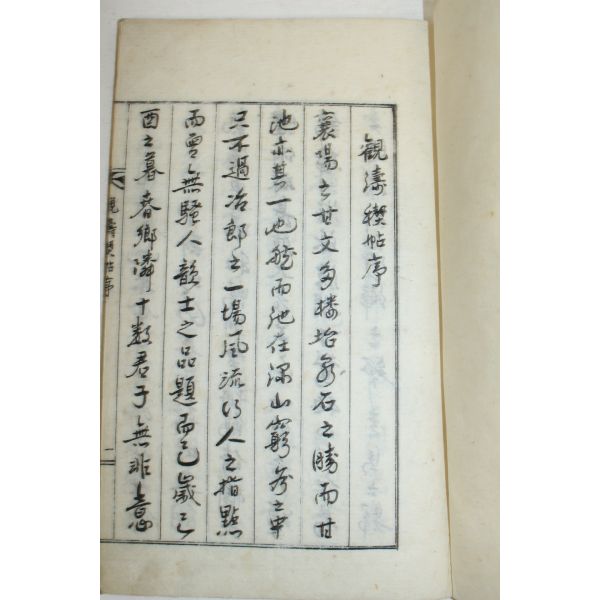 觀濤禊帖序
襄陽之甘文多樓坮泉石之勝而甘
池亦其一也然而池在深山窮谷之中
只不過冶郎之一場風流行人之指點
而曾無騷人韻士之品題而已歲己
酉之暮春鄉隣十數君子無非意
觀濤禊帖序
一